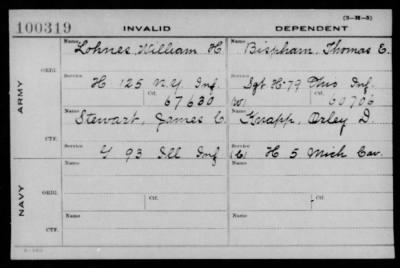 (3-H-3)
100319 INVALID DEPENDENT
Name Name
Lohnes, William H. Bispham, Thomas E.
ORIG.
Service Service
H 125 N.Y. Inf. Sgt H-79 Ohio Inf.
Ctf. Ctf.
67630 W) 60706
ARMY
Name Name
Stewart, James C. Knapp, Orley D.
CTF.
Service Service
G 93 Ill Inf (C) H 5 Mich Cav.
Name Name
ORIG.
Service Service
Ctf. Ctf.
NAVY
Name Name
CTF.
Service Service